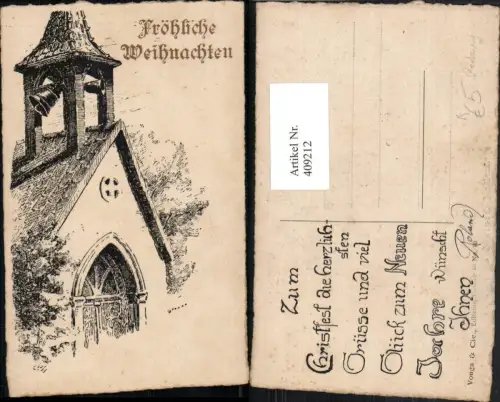 Fröhliche
Weihnachten
Artikel Nr.
409212
€ 5
Zum
Christfest die herzlich-
sten
Grüsse und viel
Glück zum Neuen
Jahre wünscht
Ihnen
Vouga & Cie.,